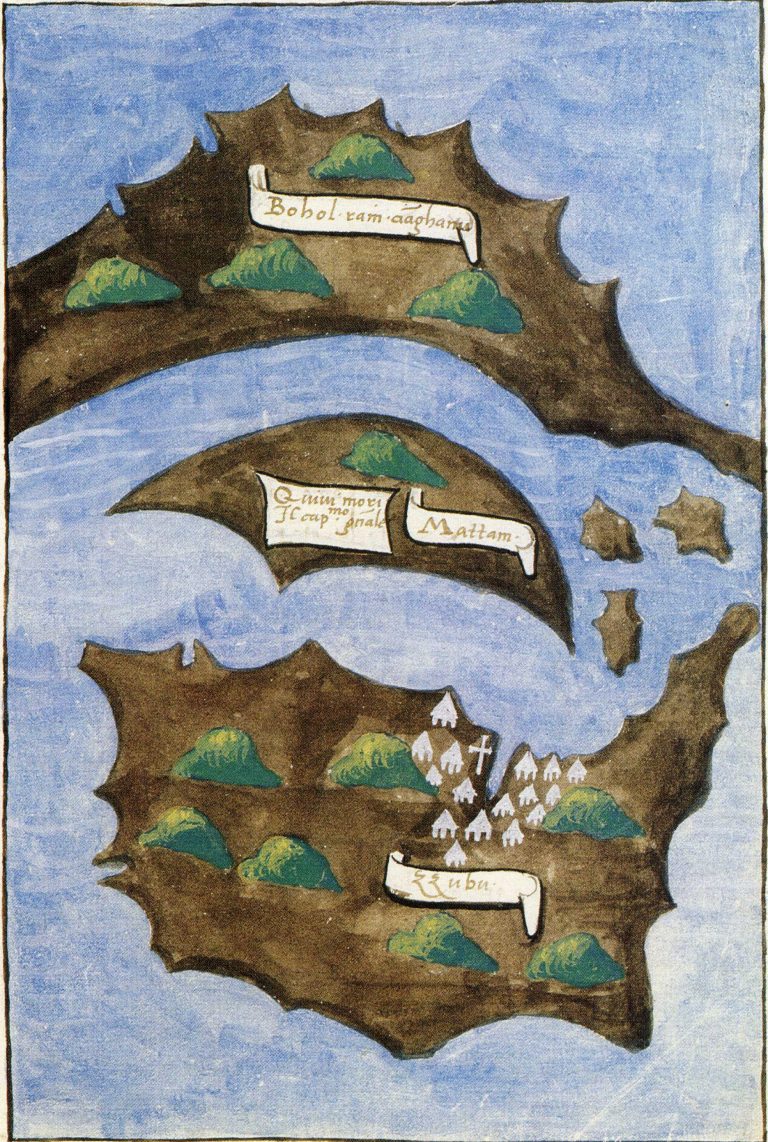 Bohol · ram ·
Quiui mori
Il cap^mo gñale
Mattam ·
Zzubu ·